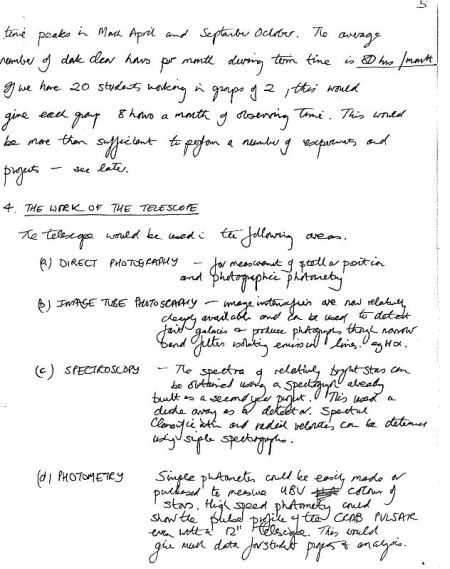 5
time peaks in March April and September October. The average
number of dark clear hours per month during term time is 80 hrs/month
If we have 20 students working in groups of 2, this would
give each group 8 hours a month of observing time. This would
be more than sufficient to perform a number of experiments and
projects — see later.
4. THE WORK OF THE TELESCOPE
The telescope would be used in the following areas.
(a) DIRECT PHOTOGRAPHY — for measurement of stellar position
and photographic photometry
(b) IMAGE TUBE PHOTOGRAPHY — image intensifiers are now relatively
cheaply available and can be used to detect
faint galaxies or produce photographs through narrow
band filters isolating emission lines. eg Hα.
(c) SPECTROSCOPY — The spectra of relatively bright stars can
be obtained using a spectrograph already
built as a second year project. This used a
diode array as a detector. Spectral
Classification and radial velocities can be determined
using simple spectrographs.
(d) PHOTOMETRY Simple photometers could be easily made or
purchased to measure UBV colours of
stars. High speed photometry could
show the pulse profile of the CRAB PULSAR
even with a 12" telescope. This would
give much data for student projects & analysis.